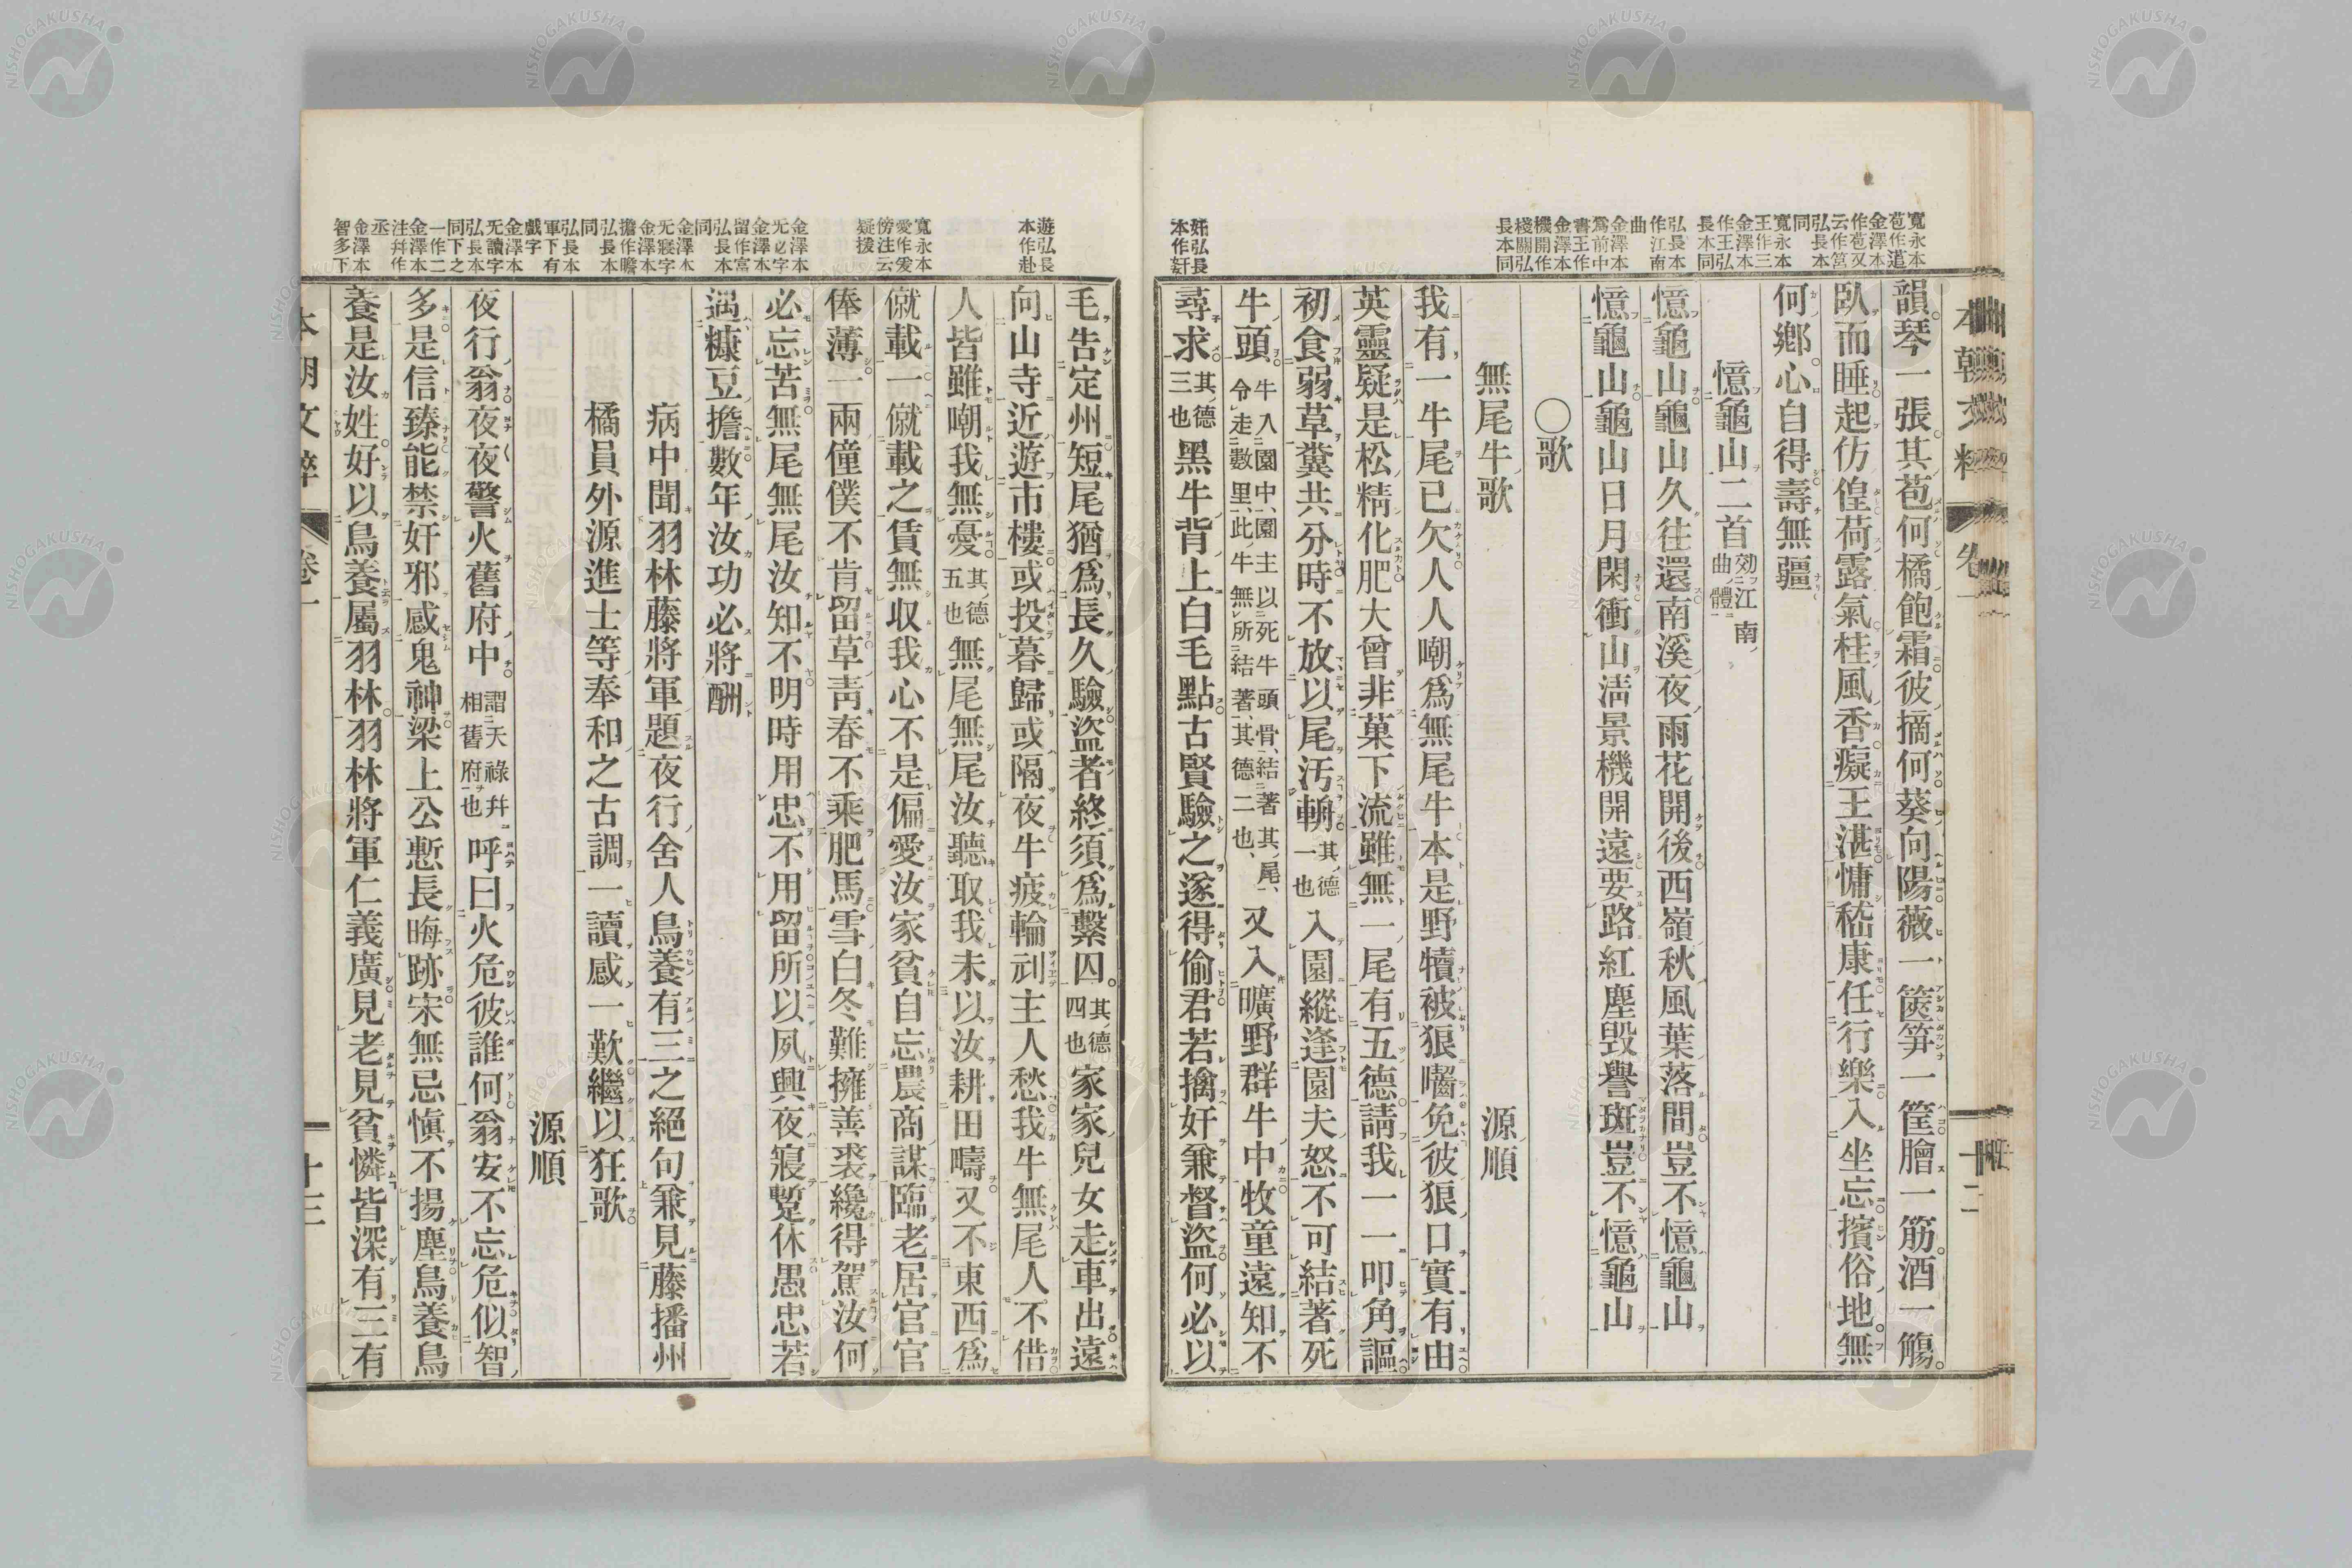 寬永本
苞作道
金澤本
作苞又
云作筥
弘長本
同
寬永本
王作三
金澤本
作王弘
長本同
弘長本
作江南
曲
金澤本
爲前中
書王作
金澤本
機開作
棧關弘
長本同
姧弘長
本作奸
韻琴一張其苞何橘飽霜彼摘何葵向陽薇一篋笋一筐膾一筋酒一觴
臥而睡起仿偟荷露氣桂風香癡王湛慵嵇康任行樂入坐忘擯俗地無
何鄕心自得壽無疆
憶龜山二首 効江南曲體
憶龜山龜山久往還南溪夜雨花開後西嶺秋風葉落間豈不憶龜山
憶龜山龜山日月閑衝山淸景機開遠要路紅塵毀譽斑豈不憶龜山
〇歌
無尾牛歌 源順
我有一牛尾已欠人人嘲爲無尾牛本是野犢被狼囓免彼狼口實有由
英靈疑是松精化肥大曾非菓下流雖無一尾有五德請我一一叩角謳
初食弱草糞共分時不放以尾汚輈 其德一也 入園縱逢園夫怒不可結著死
牛頭 牛入園中、園主以死牛頭骨、結著其尾、令走數里、此牛無所結著、其德二也、 又入曠野群牛中牧童遠知不
尋求 其德三也 黑牛背上白毛點古賢驗之遂得偷君若擒奸兼督盜何必以
本朝文粹 卷一 十二
遊弘長
本作赴
寬永本
愛作爱
傍注云
疑援
金澤本
无必字
金澤本
留作富
弘長本
同
金澤本
无寢字
金澤本
擔作瞻
弘長本
同
弘長本
軍下有
戲字
金澤本
无讀字
弘長本
同下之
一作二
金澤本
注幷作
丞
金澤本
智多下
毛吿定州短尾猶爲長久驗盜者終須爲繫囚 其德四也 家家兒女走車出遠
向山寺近遊市樓或投暮歸或隔夜牛疲輪刓主人愁我牛無尾人不借
人皆雖嘲我無憂 其德五也 無尾無尾汝聽取我未以汝耕田疇又不東西爲
僦載一僦載之賃無收我心不是偏愛汝家貧自忘農商謀臨老居官官
俸薄一兩僮僕不肯留草靑春不乘肥馬雪白冬難擁善裘纔得駕汝何
必忘苦無尾無尾汝知不明時用忠不用留所以夙興夜寢蹔休愚忠若
遇糠豆擔數年汝功必將酬
病中聞羽林藤將軍題夜行舍人鳥養有三之絕句兼見藤播州
橘員外源進士等奉和之古調一讀感一歎繼以狂歌
源順
夜行翁夜夜警火舊府中 謂天祿幷相舊府也 呼曰火危彼誰何翁安不忘危似智
多是信臻能禁奸邪感鬼神梁上公慙長晦跡宋無忌愼不揚塵鳥養鳥
養是汝姓好以鳥養屬羽林羽林將軍仁義廣見老見貧憐皆深有三有
本朝文粹 卷一 十三